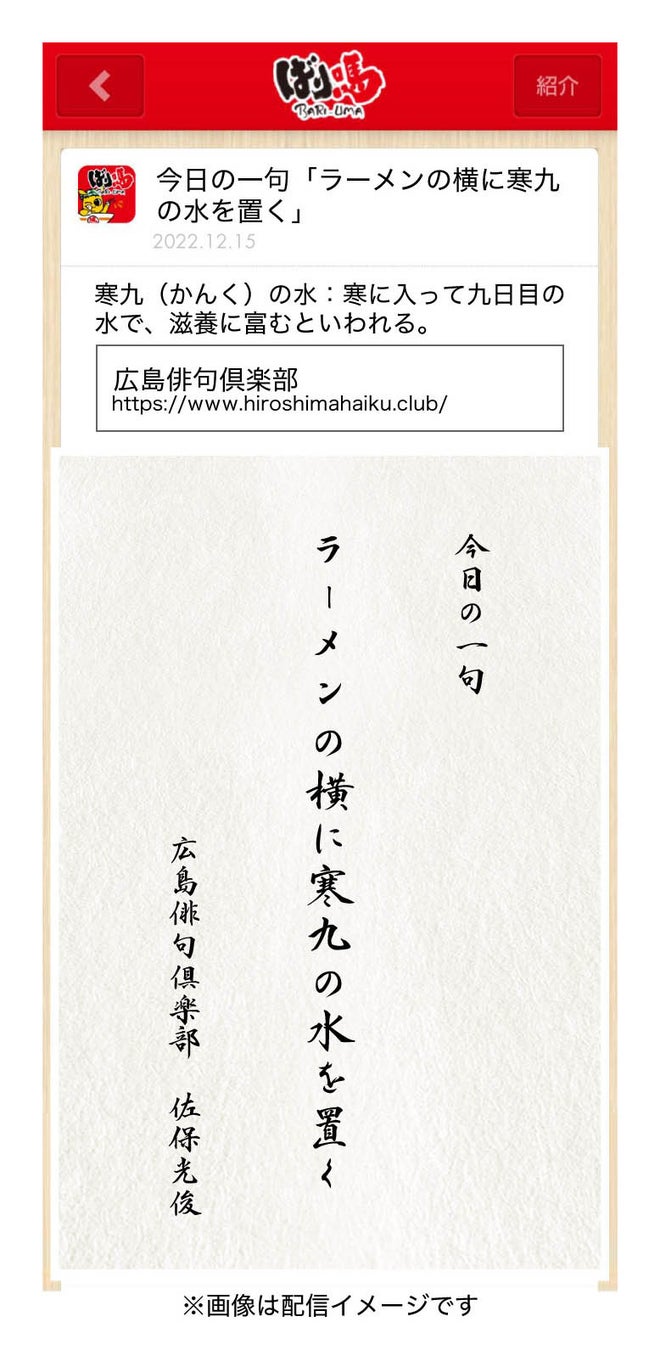 ばり嗎
BARI-UMA
紹介
今日の一句「ラーメンの横に寒九
の水を置く」
2022.12.15
寒九（かんく）の水：寒に入って九日目の
水で、滋養に富むといわれる。
広島俳句倶楽部
https://www.hiroshimahaiku.club/
今日の一句
ラーメンの横に寒九の水を置く
広島俳句倶楽部　佐保光俊
※画像は配信イメージです